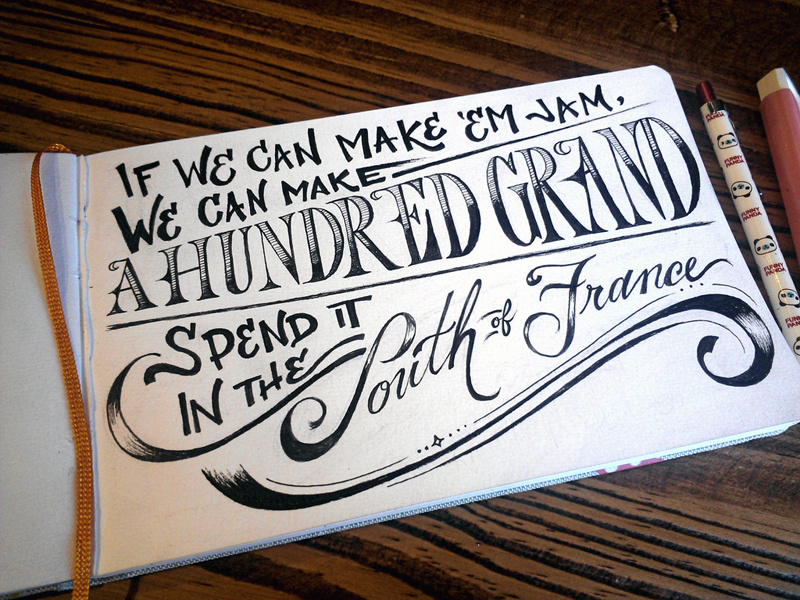 IF WE CAN MAKE 'EM JAM,
WE CAN MAKE
A HUNDRED GRAND
SPEND IT
IN THE South of France
FUNNY PANDA
FUNNY PANDA
FUNNY PANDA
FUNNY PANDA